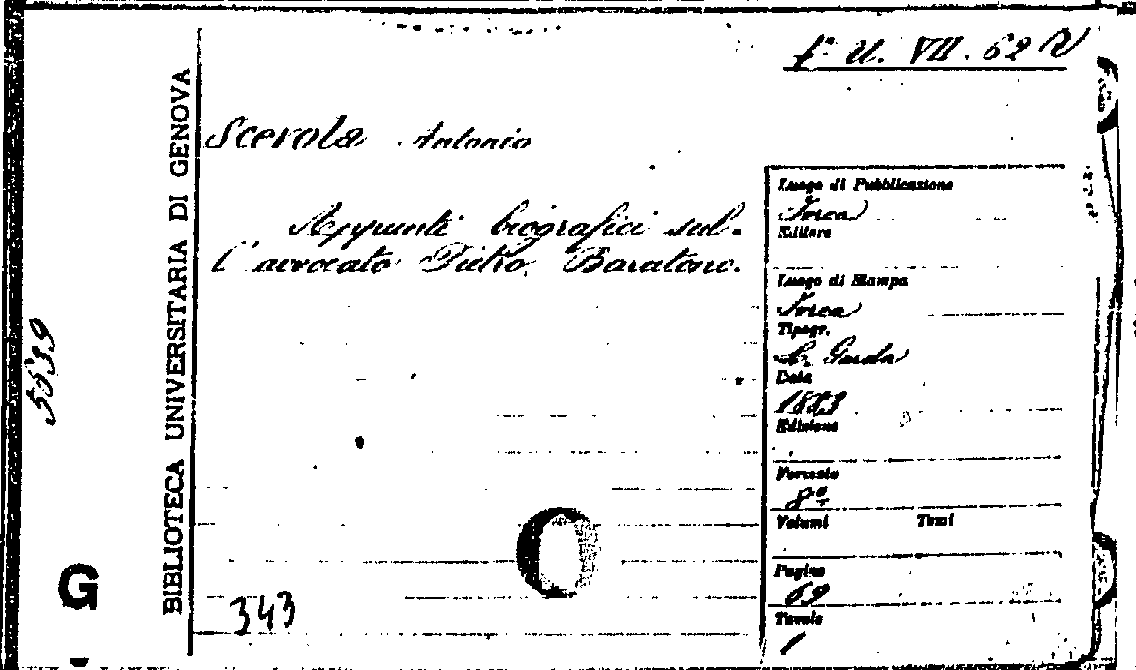 1ª U. VII. 62
Scerola Antonio
Appunti biografici sul-
l'avvocato Pietro Baratono.
BIBLIOTECA UNIVERSITARIA DI GENOVA
5539
G
343
Luogo di Pubblicazione
Ivrea
Editore
Luogo di Stampa
Ivrea
Tipogr.
Garda
Data
1883
Edizione
Formato
8º
Volumi Tomi
Pagine
69
Tavole
1